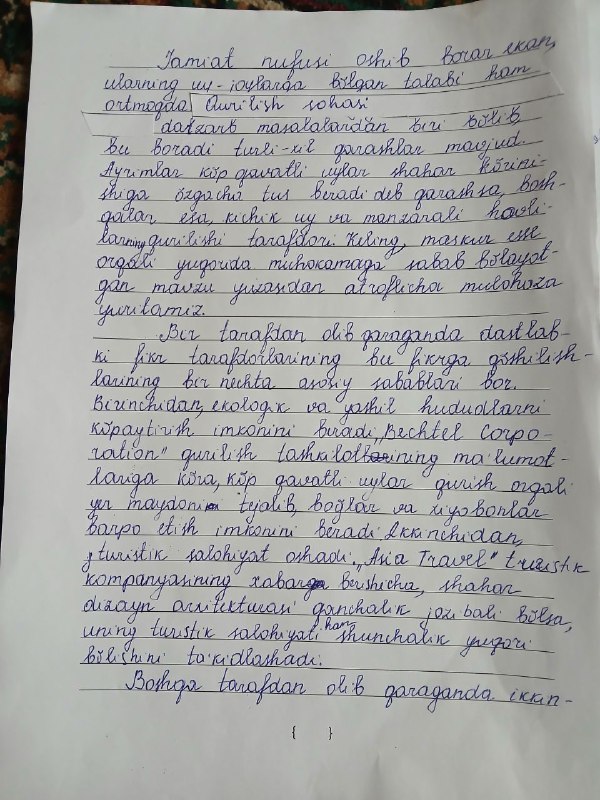 Jamiat nufusi oshib borar ekan,
ularning uy-joylarga bõlgan talabi ham
ortmoqda Qurilish sohasi
dolzarb masalalardan biri bõlib
bu boradi turli-xil qarashlar mavjud.
Ayrimlar kõp qavatli uylar shahar kõrini-
shiga õzgacha tus beradi deb qarashsa, bosh-
qalar esa, kichik uy va manzarali hovli-
larning qurilishi tarafdori. Keling, maskur esse
orqali yuqorida muhokamaga sabab bõlayot-
gan mavzu yuzasidan atroflicha mulohaza
yuritamiz.
Bir tarafdan olib qaraganda dastlab-
ki fikr tarafdorlarining bu fikrga qõshilish-
larining bir nechta asosiy sabablari bor.
Birinchidan, ekologik va yashil hududlarni
kõpaytirish imkonini biradi. „Bechtel Corpo-
ration" qurilish tashkilotining ma'lumot-
lariga kõra, kõp qavatli uylar qurish orqali
yer maydoni tejalib, bog'lar va xiyobonlar
barpo etish imkonini beradi. Ikkinchidan,
turistik salohiyat oshadi. „Asia Travel" turistik
kompanyasining xabar berishicha, shahar
dizayn arxitekturasi qanchalik jozibali bõlsa,
uning turistik salohiyati ham shunchalik yuqori
bõlishini ta'kidlashadi.
Boshqa tarafdan olib qaraganda ikkin-
{ }